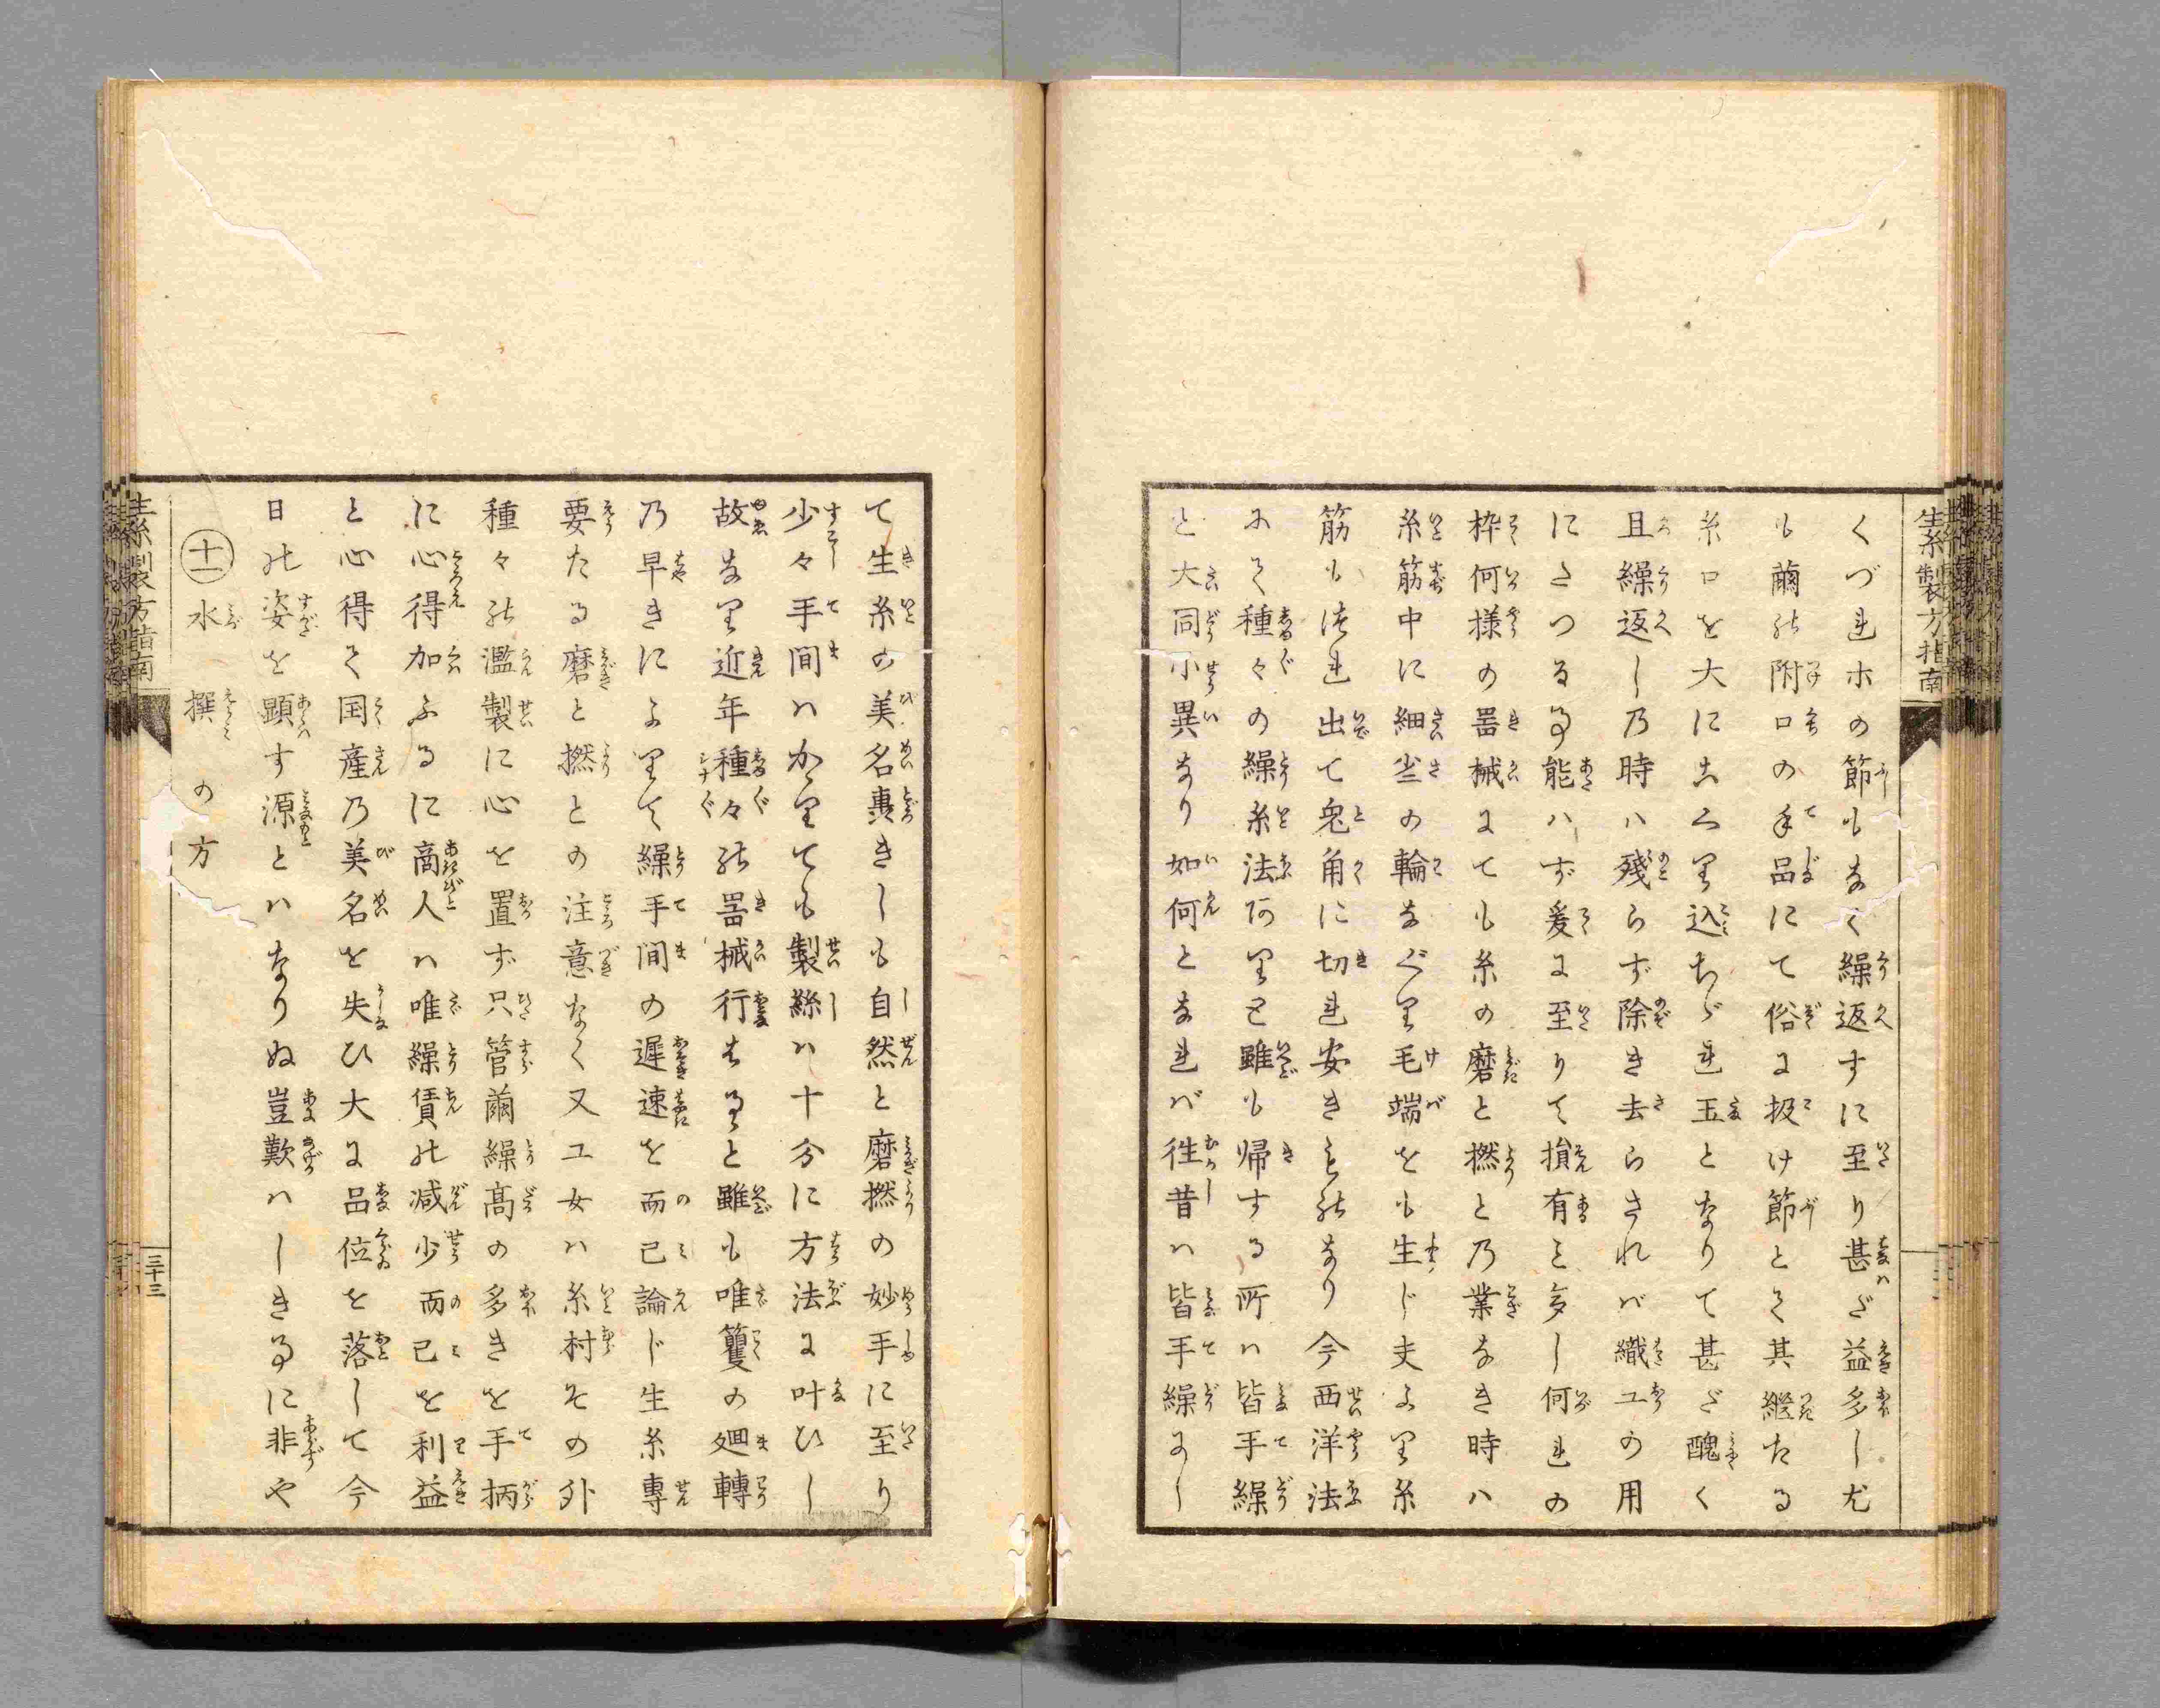 生糸製方指南
くづれホの節もなく繰返すに至り甚ハだ益多し尤
も繭の附口の手品にて俗に扱け節とて其繼たる
糸口を大にこくり込ちゞれ玉となりて甚だ醜く
且繰返し乃時ハ殘らず除き去らされバ織工の用
にたつる事能ハず爰に至りて損有こと多し何れの
枠何様の噐械にても糸の磨と撚と乃業なき時ハ
糸筋中に細尘の輪なぐり毛端をも生じ夫より糸
筋もほれ出て兔角に切れ安きものなり今西洋法
にて種々の繰糸法阿りと雖も帰する所ハ皆手繰
と大同小異なり如何となれバ徃昔ハ皆手繰にし
て生糸の美名轟きしも自然と磨撚の妙手に至り
少々手間ハかゝりても製絲ハ十分に方法に叶ひし
故なり近年種々の噐械行はるゝと雖も唯籰の廻轉
乃早きによりて繰手間の遲速を而已論じ生糸專
要たる磨と撚との注意なく又工女ハ糸村その外
種々の濫製に心を置ず只管繭繰髙の多きを手柄
に心得加ふるに商人ハ唯繰賃の減少而已を利益
と心得て国産乃美名を失ひ大に品位を落して今
日の姿を顕す源とハなりぬ豈歎ハしき事に非や
十一 水撰の方
生糸製方指南
三十三